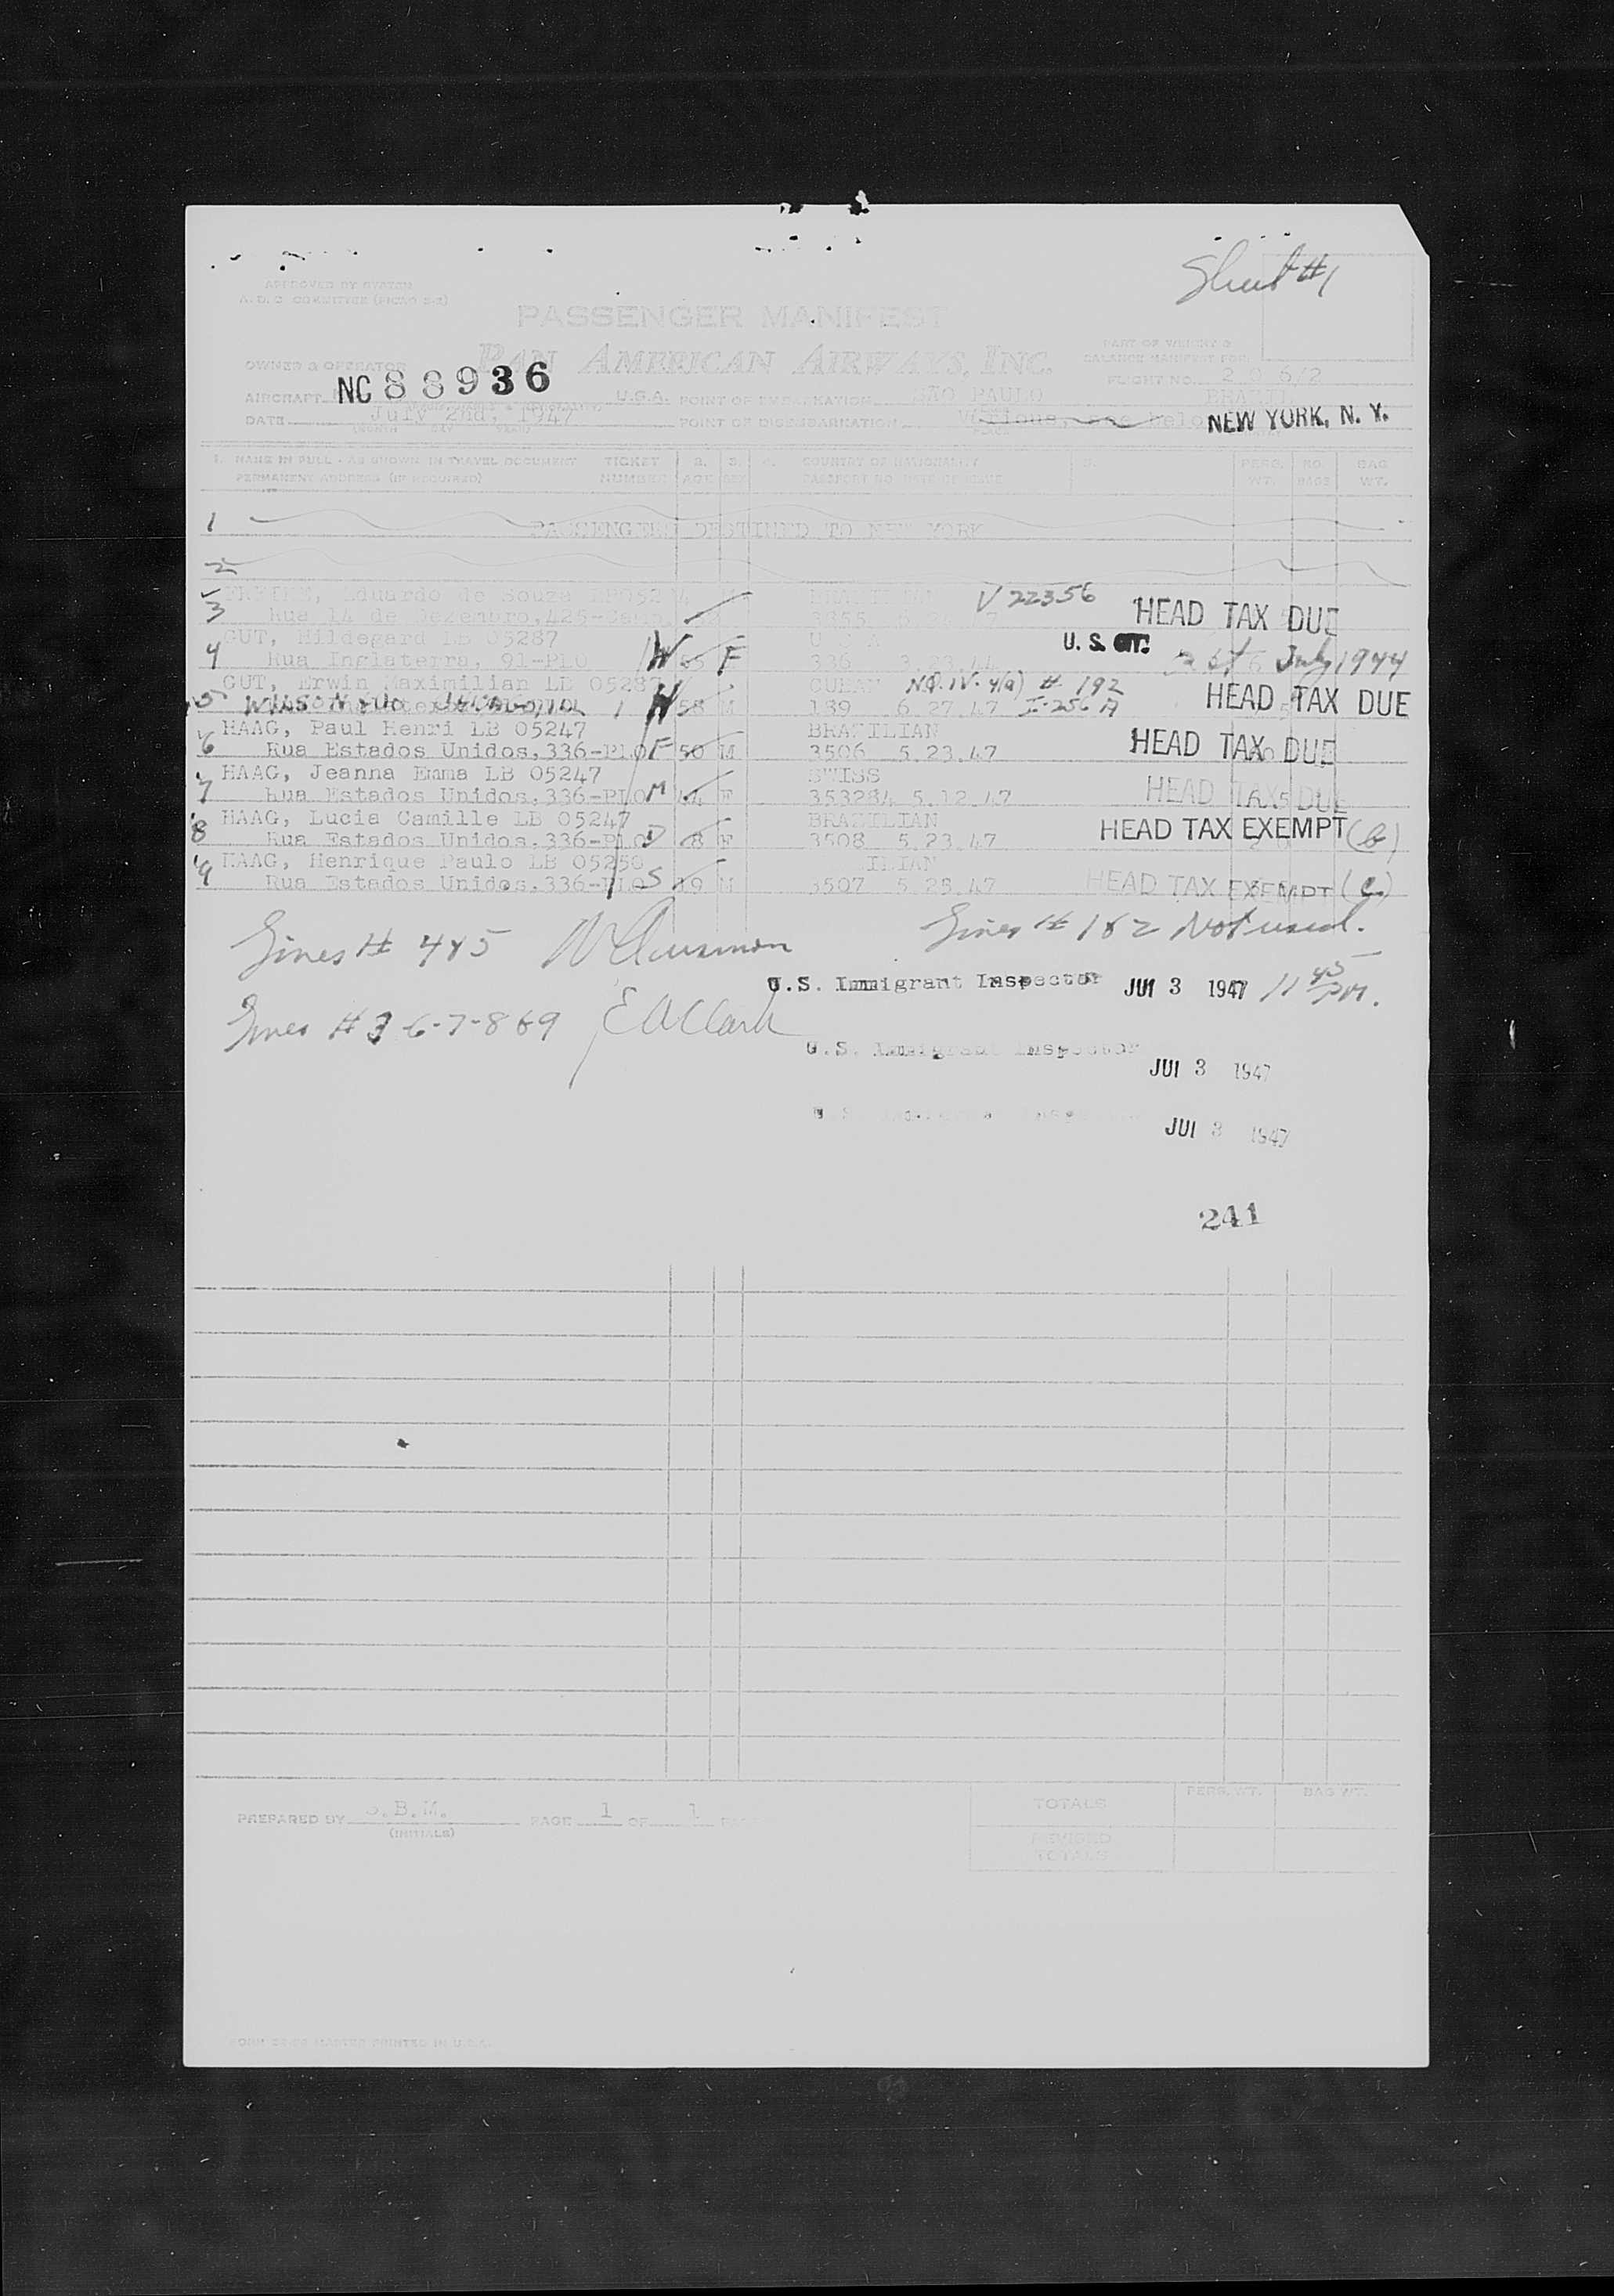 Sheet #1
APPROVED BY SYSTEM
A.D.C. COMMITTEE
PASSENGER MANIFEST
OWNER & OPERATOR PAN AMERICAN AIRWAYS, INC.
PART OF WEIGHT &
BALANCE MANIFEST FOR
FLIGHT NO. 206/2
AIRCRAFT NC 88936 POINT OF EMBARKATION SAO PAULO BRAZIL
DATE July 2nd, 1947 POINT OF DISEMBARKATION Various, see below NEW YORK, N. Y.
1. NAME IN FULL - AS SHOWN IN TRAVEL DOCUMENT TICKET 2. 3. 4. COUNTRY OF NATIONALITY 5. PERS. NO. BAG
PERMANENT ADDRESS (IF REQUIRED) NUMBER AGE SEX PASSPORT NO. DATE OF ISSUE WT. BAGS WT.
1 PASSENGERS DESTINED TO NEW YORK
2
3 Eduardo de Souza V 22356 HEAD TAX DUE
Rua 14 de Dezembro, 425
4 GUT, Hildegard LB 05287 U. S. CIT.
Rua Inglaterra, 91-PLO W F 336 July 1944
5 GUT, Erwin Maximilian LB 05287 CUBAN N.Q. IV. 4(a) # 192
H 58 M 189 6.27.47 I-256 A HEAD TAX DUE
6 HAAG, Paul Henri LB 05247 BRAZILIAN
Rua Estados Unidos, 336-PLO F 50 M 3506 5.23.47 HEAD TAX DUE
7 HAAG, Jeanna Emma LB 05247 SWISS
Rua Estados Unidos, 336-PLO M 44 F 353284 5.12.47 HEAD TAX DUE
8 HAAG, Lucia Camille LB 05247 BRAZILIAN
Rua Estados Unidos, 336-PLO D 8 F 3508 5.23.47 HEAD TAX EXEMPT (b)
9 HAAG, Henrique Paulo LB 05250 ILIAN
Rua Estados Unidos, 336-PLO S 19 M 3507 5.23.47 HEAD TAX EXEMPT
Lines # 1 & 2 Not used.
Lines # 4 & 5
U.S. Immigrant Inspector JUL 3 1947 11 45 PM.
Lines # 3 6-7-8 & 9 E A Clark
U.S. Immigrant Inspector
JUL 3 1947
JUL 3 1947
241
PREPARED BY S.B.M. PAGE 1 OF 1
(INITIALS)
TOTALS PERS. WT. BAG WT.
REVISED
TOTALS